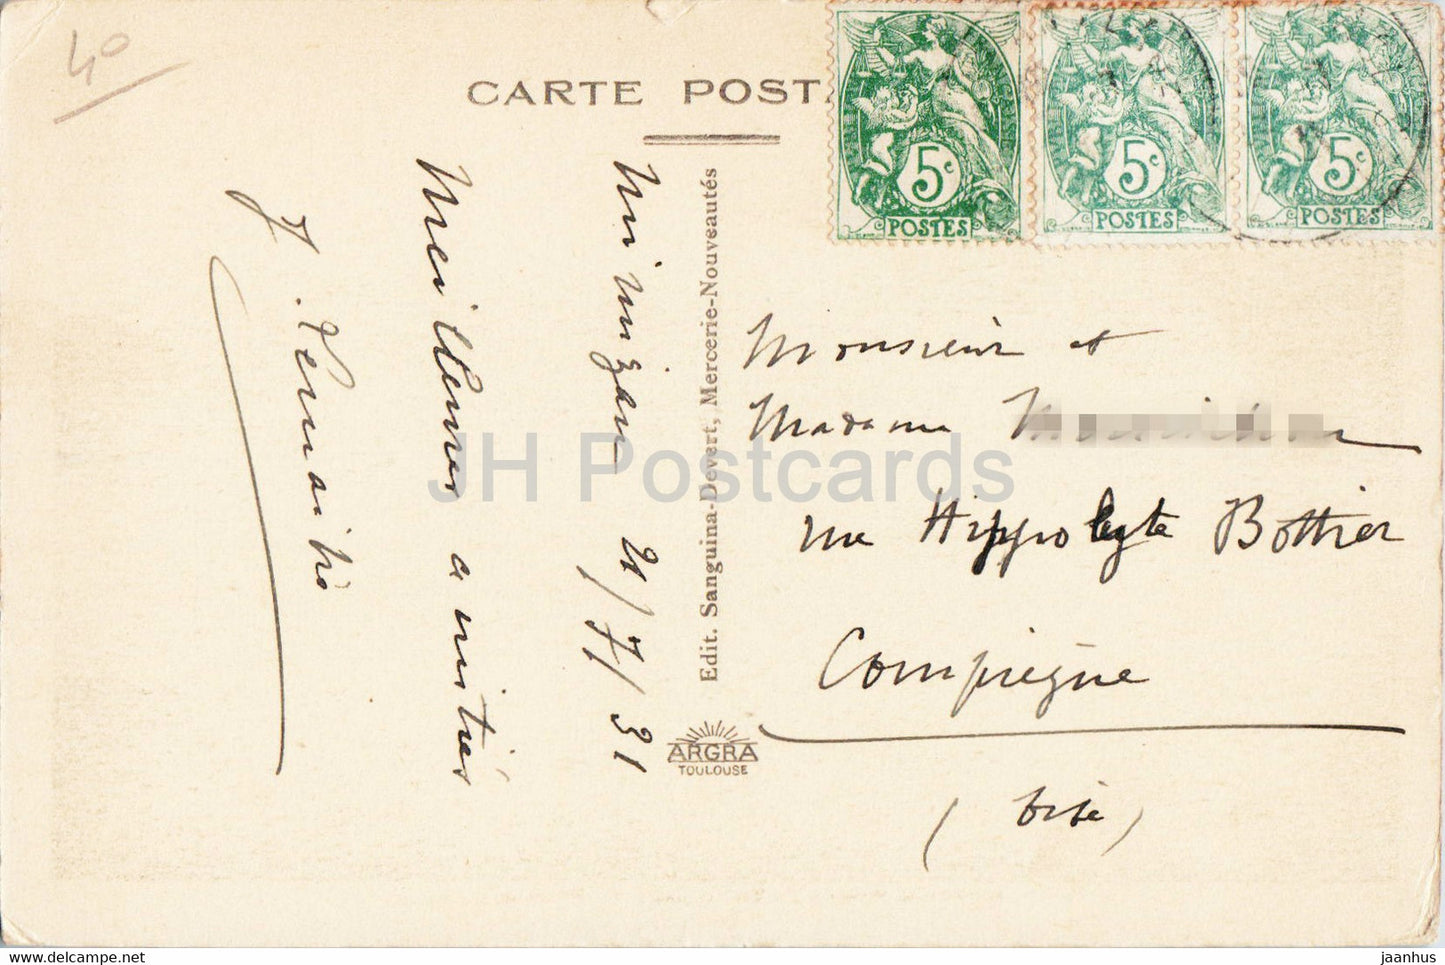 40
CARTE POST
5c
POSTES
5c
POSTES
5c
POSTES
Mimizan 21/7/31
Meilleures amitiés
J.
Edit. Sanguina-Devert, Mercerie-Nouveautés
ARGRA
TOULOUSE
Monsieur et
Madame
rue Hippolyte Bottier
Compiègne
(Oise)
JH Postcards
www.delcampe.net
jaanhus